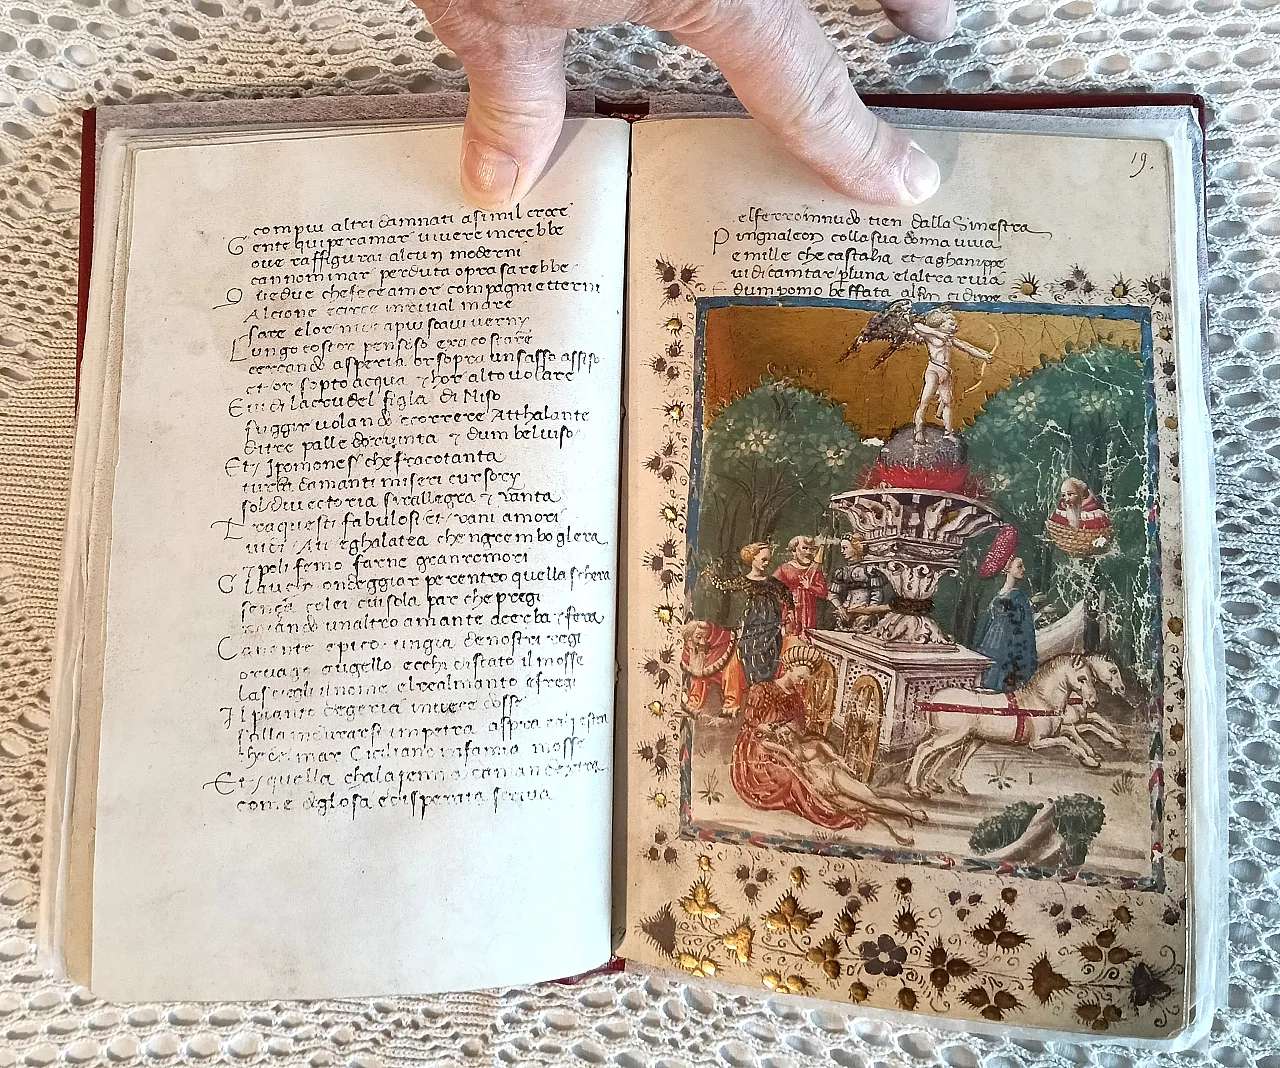 com piu altri damnati a simil croce
Gente qui per amar viver increbbe
ove raffigurai alcun moderni
ca nominar perduta opra sarebbe
Que due che fece amor compagni etterni
Alcione
fare e lor nidi a piu soavi verni
Lungo costor pensoso era
cercando Asperia or sopra un sasso assiso
et or sotto acqua et hor alto volare
E vidi la crudel figla di Niso
fuggir volando e correre Atthalante
di tre palle d or vinta et d un bel viso
Et Ipomones che fra cotanta
turba d amanti miseri cursory
sol di vectoria si rallegra et vanta
Fra questi fabulosi et vani amori
vidi che ngrembo glera
Polifemo farne gran remori
Glauco ondeggiar per entro quella schera
senza colei cui sola par che pregi
un altro amante acerba et fera
Canente e pico un gia de nostri regi
or vago augello e chi di stato il mosse
lasciogli l nome el real manto e fregi
Il pianto d egeria invece d osse
indurarsi in petra aspra
che del mar Ciciliano infamia mosse
Et quella cha la penna
come dogliosa e disperata scriva
19.
el ferro innudo tien dalla Sinestra
Pingnaleon colla sua donna viva
e mille che castalia et aghanippe
vidi cantar per luna e laltra riva
E d un pomo beffata al fin cidippe